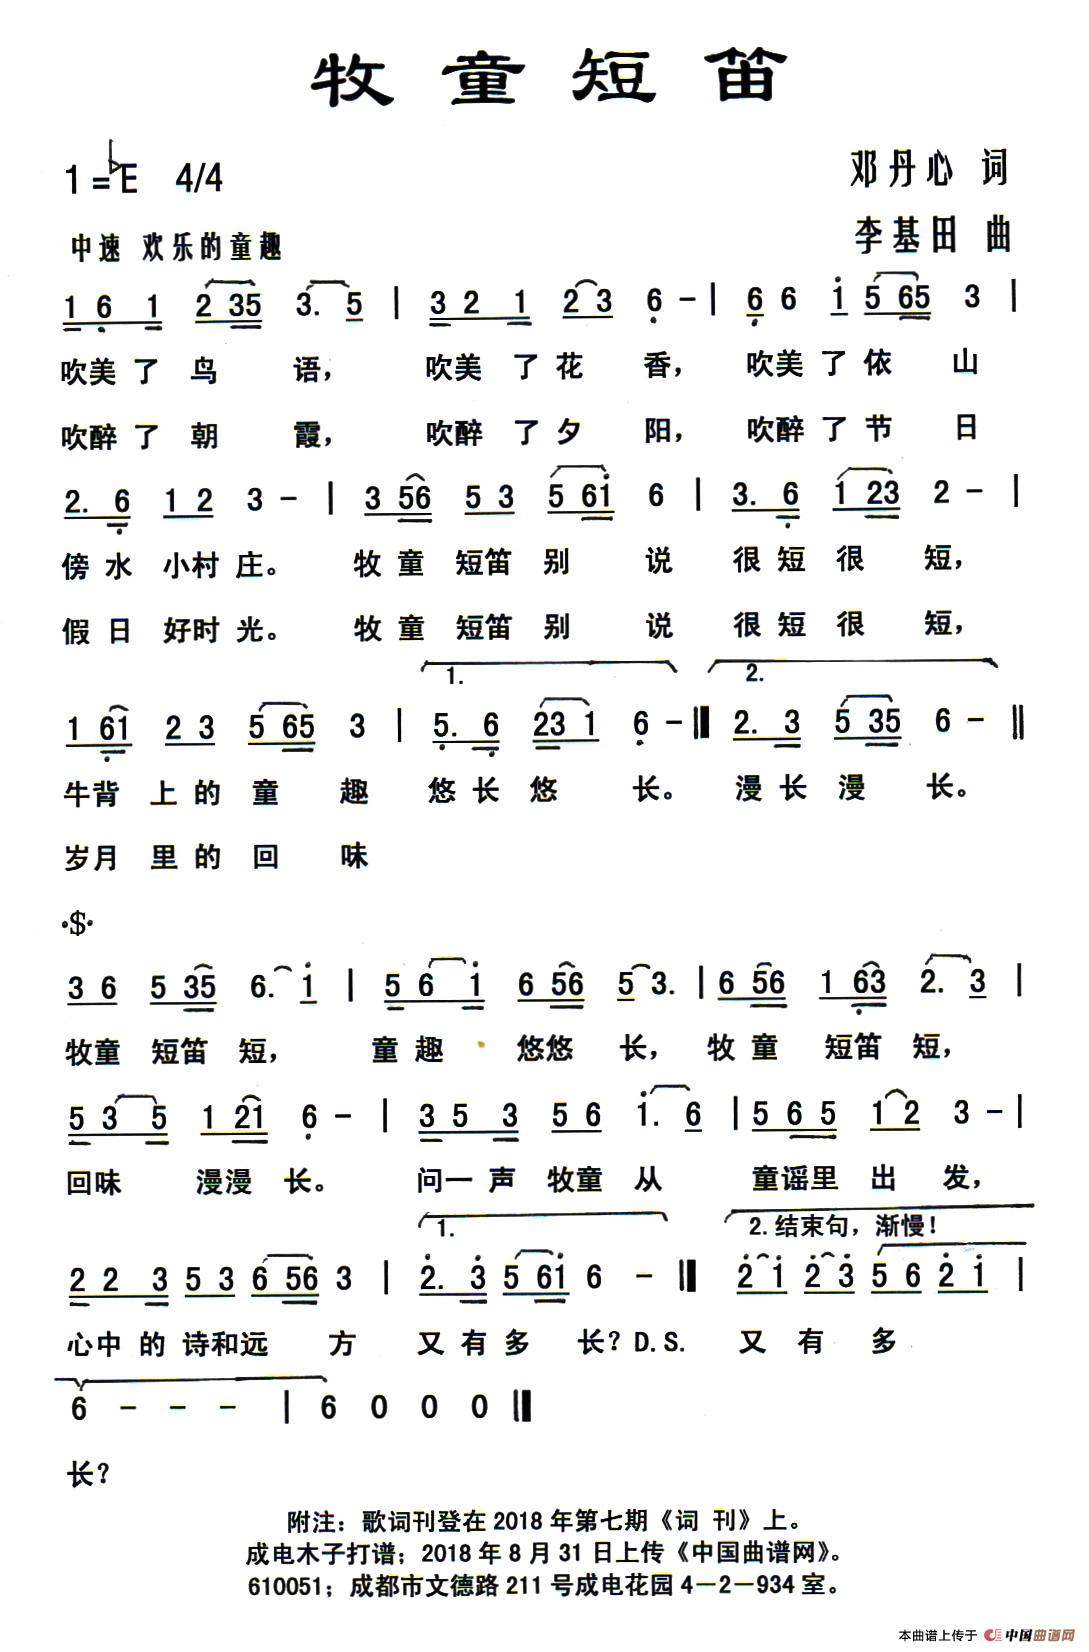 牧童短笛
1=♭E 4/4
邓丹心 词
中速 欢乐的童趣
李基田 曲
1 6 1 2 35 3. 5 | 3 2 1 2 3 6 - | 6 6 1 5 65 3 |
吹美了鸟语，吹美了花香，吹美了依山
吹醉了朝霞，吹醉了夕阳，吹醉了节日
2. 6 1 2 3 - | 3 56 5 3 5 61 6 | 3. 6 1 23 2 - |
傍水小村庄。牧童短笛别说很短很短，
假日好时光。牧童短笛别说很短很短，
1. 2.
1 61 2 3 5 65 3 | 5. 6 23 1 6 - ‖ 2. 3 5 35 6 - ‖
牛背上的童趣悠长悠长。漫长漫长。
岁月里的回味
·$·
3 6 5 35 6. 1 | 5 6 1 6 56 5 3. | 6 56 1 63 2. 3 |
牧童短笛短，童趣悠悠长，牧童短笛短，
5 3 5 1 21 6 - | 3 5 3 5 6 1. 6 | 5 6 5 1 2 3 - |
回味漫漫长。问一声牧童从童谣里出发，
1. 2.结束句，渐慢！
2 2 3 5 3 6 56 3 | 2. 3 5 61 6 - ‖ 2 1 2 3 5 6 2 1 |
心中的诗和远方又有多长？D.S. 又有多
6 - - - | 6 0 0 0 ‖
长？
附注：歌词刊登在2018年第七期《词 刊》上。
成电木子打谱；2018年8月31日上传《中国曲谱网》。
610051；成都市文德路211号成电花园4-2-934室。
本曲谱上传于 中国曲谱网